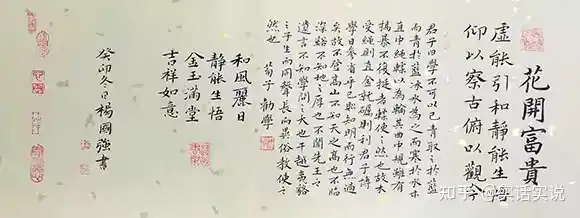 花開富貴
虛能引和靜能生悟
仰以察古俯以觀今
君子曰學不可以已青取之於藍
而青於藍冰水為之而寒於水木
直中繩輮以為輪其曲中規雖有
槁暴不復挺者輮使之然也故木
受繩則直金就礪則利君子博
學日參省乎己則知明而行無過
矣故不登高山不知天之高也不臨
深谿不知地之厚也不聞先王之
遺言不知學問之大也干越夷貉
之子生而同聲長而異俗教使之
然也 荀子勸學
和風麗日
靜能生悟
金玉滿堂
吉祥如意
癸卯冬日楊國強書
知乎 @实话实说